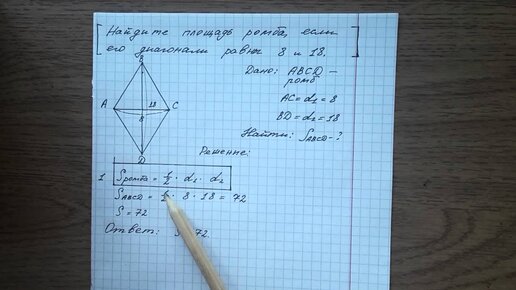 Найдите площадь ромба, если
его диагонали равны 8 и 18.
Дано: ABCD —
ромб
AC = d₁ = 8
BD = d₂ = 18
Найти: S_ABCD - ?
B
A
18
C
8
D
Решение:
1 Sромба = 1/2 · d₁ · d₂
S_ABCD = 1/2 · 8 · 18 = 72
S = 72
Ответ: 72.